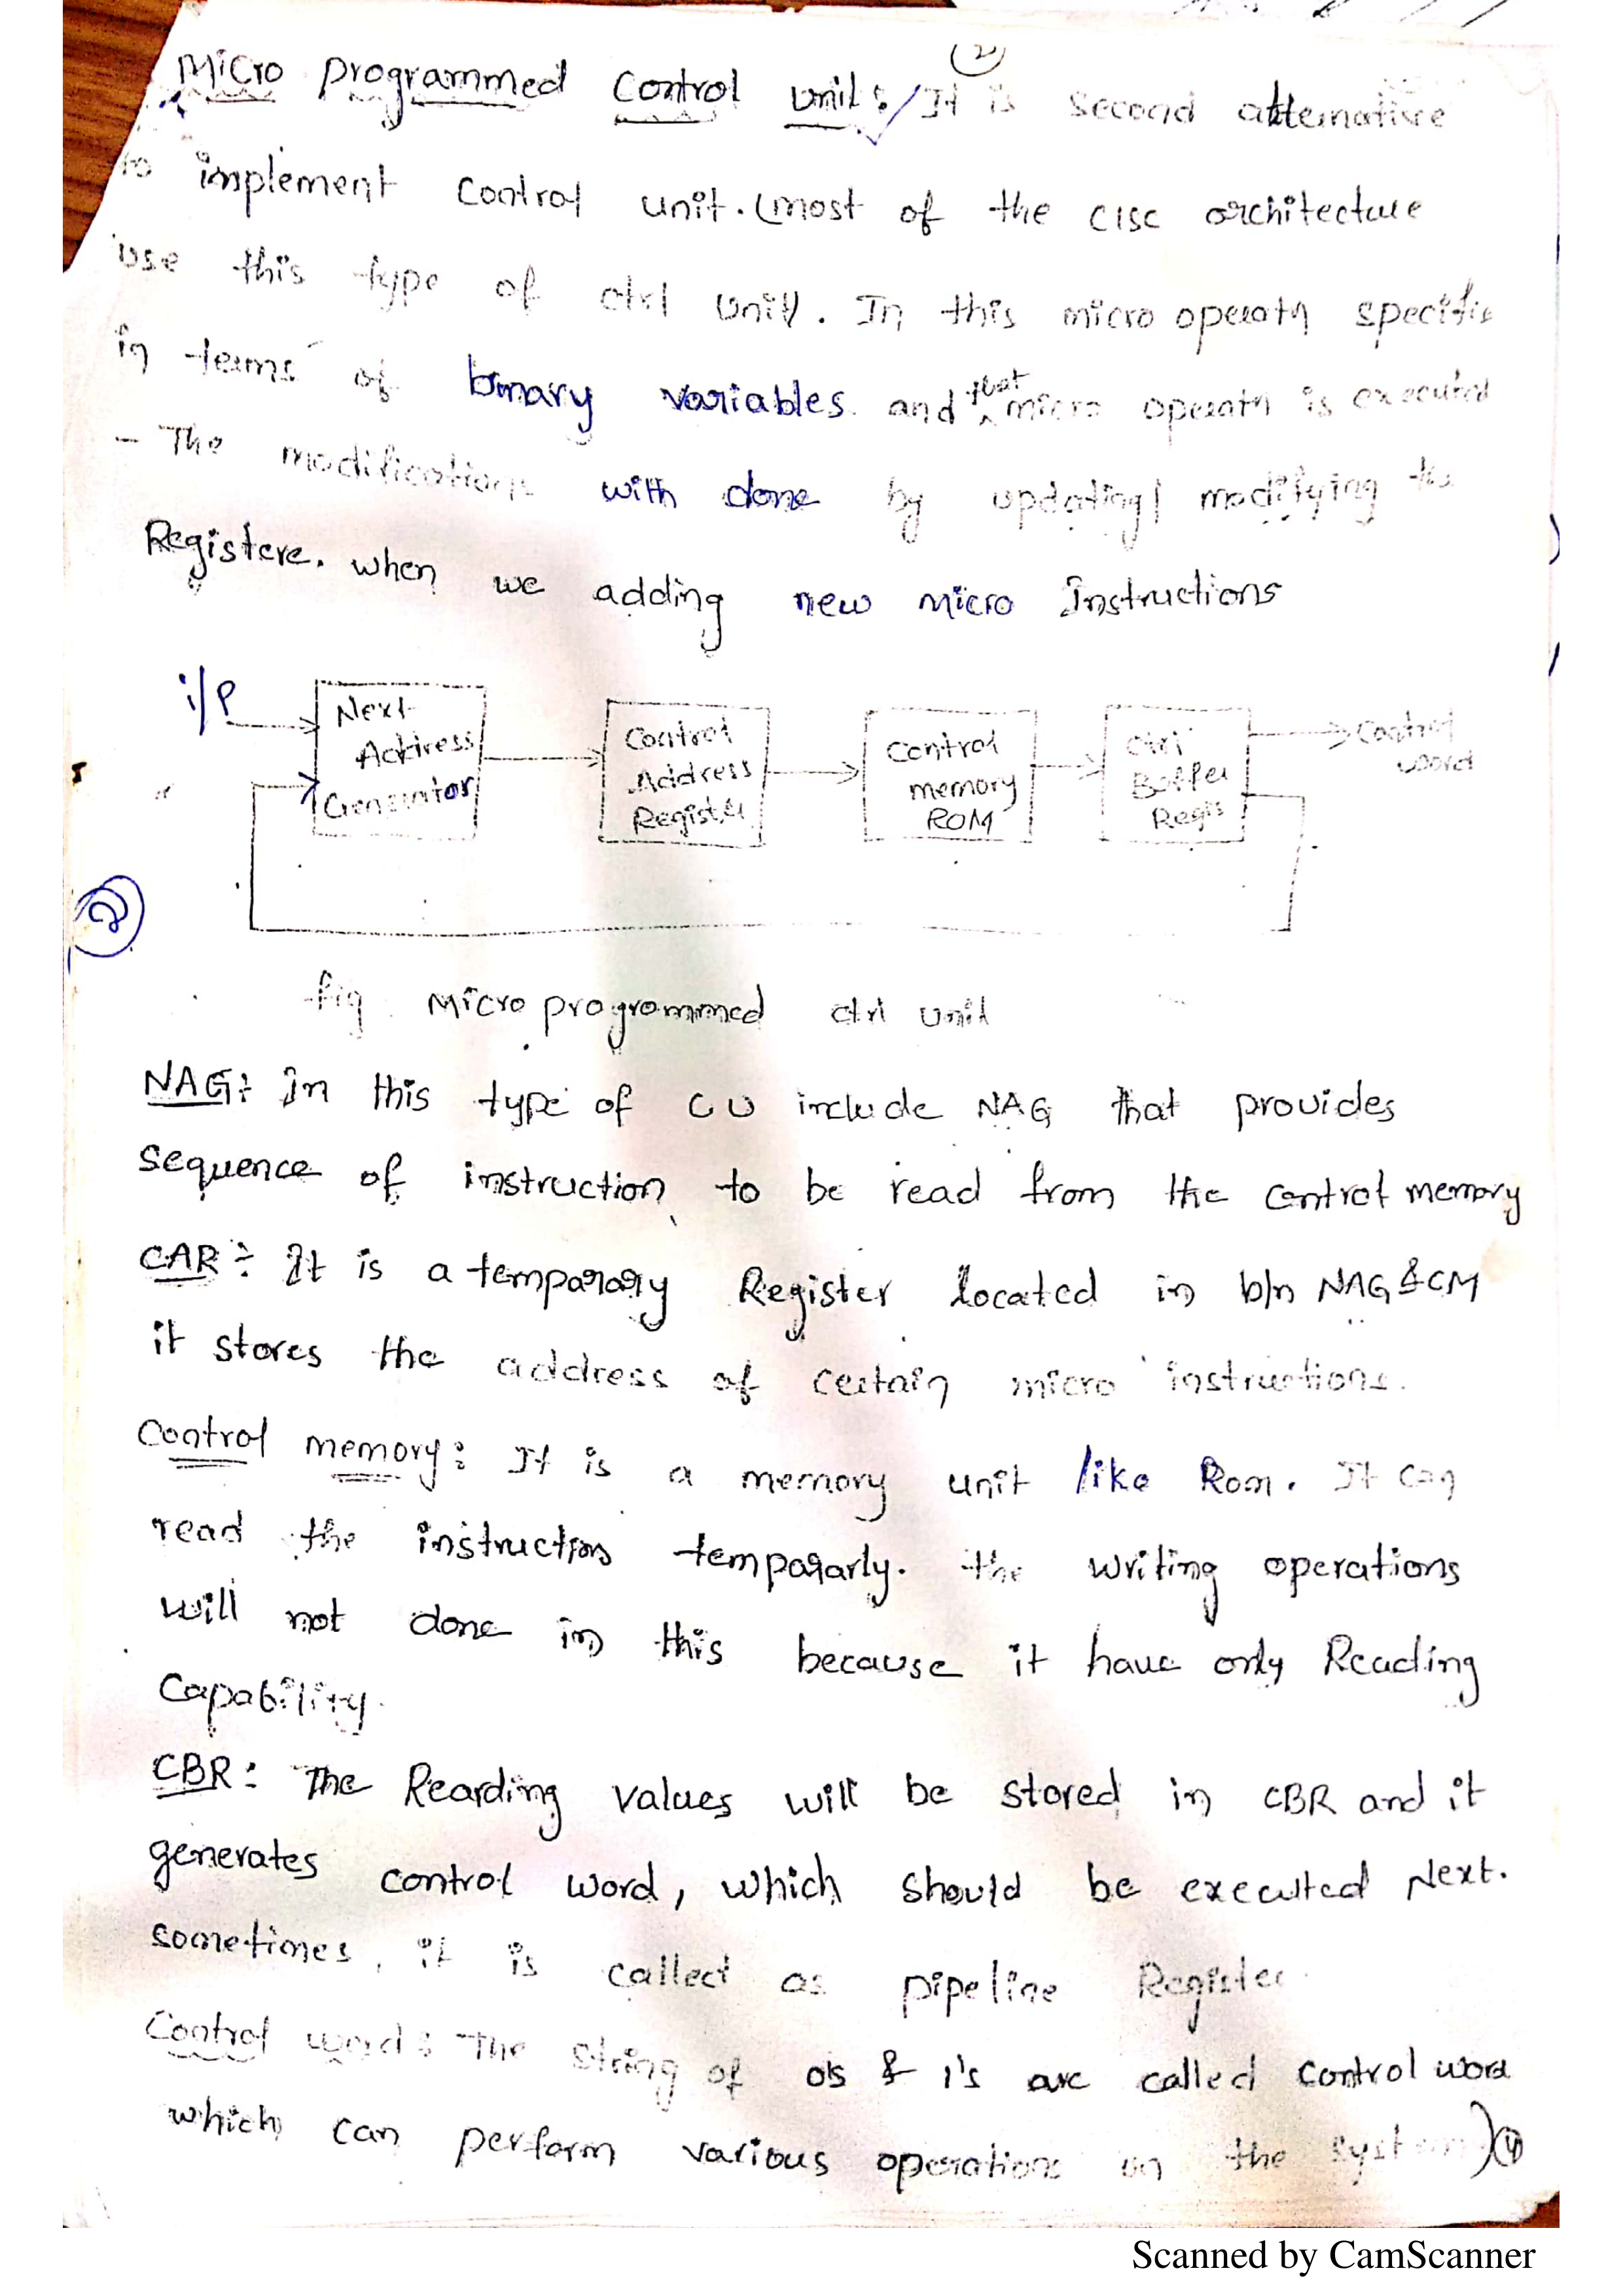 (2)
Micro programmed Control unit : / It is second alternative
to implement control unit. (most of the CISC architecture
use this type of ctrl unit). In this micro operatn specific
in terms of binary variables. and that micro operatn is executed
- The modifications with done by updating/ modifying the
Registere. when we adding new micro Instructions
i/p
Next Address Generator
Control Address Register
Control memory ROM
Ctrl Buffer Regis
Control word
(2)
fig. Micro programmed ctrl unit
NAG : In this type of CU include NAG that provides
sequence of instruction to be read from the control memory
CAR : It is a temparary Register located in b/n NAG & CM
it stores the address of certain micro instructions.
Control memory : It is a memory unit like Rom. It can
read the instructions temparaly. the writing operations
will not done in this because it have only Reading
Capability.
CBR : The Rearding values will be stored in CBR and it
generates control word, which should be executed Next.
sometimes, it is called as pipeline Register.
Control word : The string of 0's & 1's are called control word
which can perform various operations on the system) (4)
Scanned by CamScanner